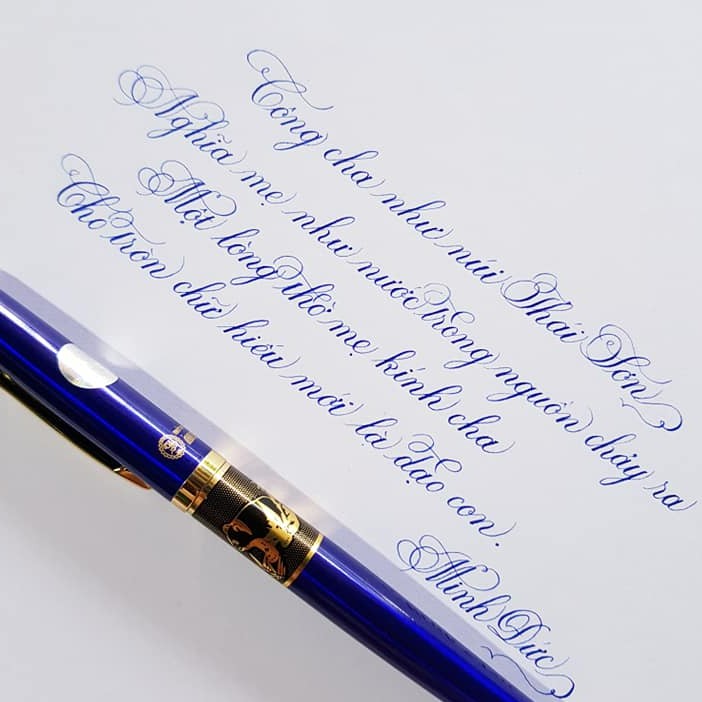 Công cha như núi Thái Sơn
Nghĩa mẹ như nước trong nguồn chảy ra
Một lòng thờ mẹ kính cha
Cho tròn chữ hiếu mới là đạo con.
Minh Đức